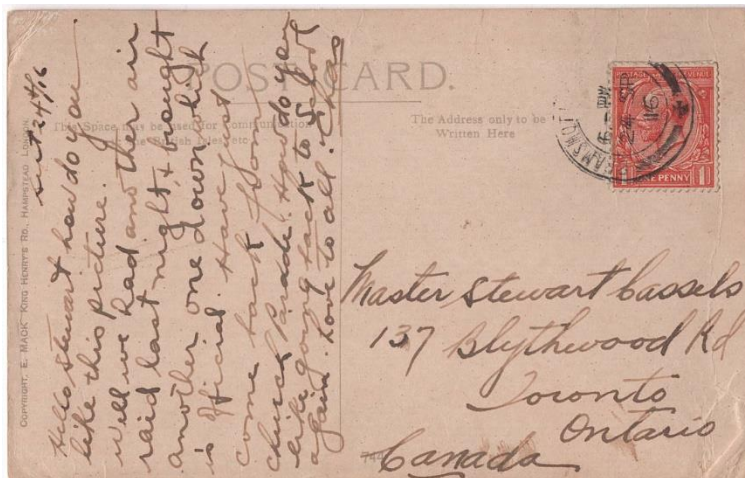 POST CARD.
This Space may be used for Communication
in the British Isles, etc
The Address only to be
Written Here
COPYRIGHT. E. MACK KING HENRY'S RD. HAMPSTEAD LONDON
Sept 24th/16
Hello Stewart how do you
like this picture.
well we had another air
raid last night, & brought
another one down which
is official. Have just
come back from
church Parade. How do you
like going back to School
again. Love to all. Chas
Master Stewart Cassels
137 Blythwood Rd
Toronto
Ontario
Canada
744
POSTAGE REVENUE
1 ONE PENNY 1
PM
24 SP
16